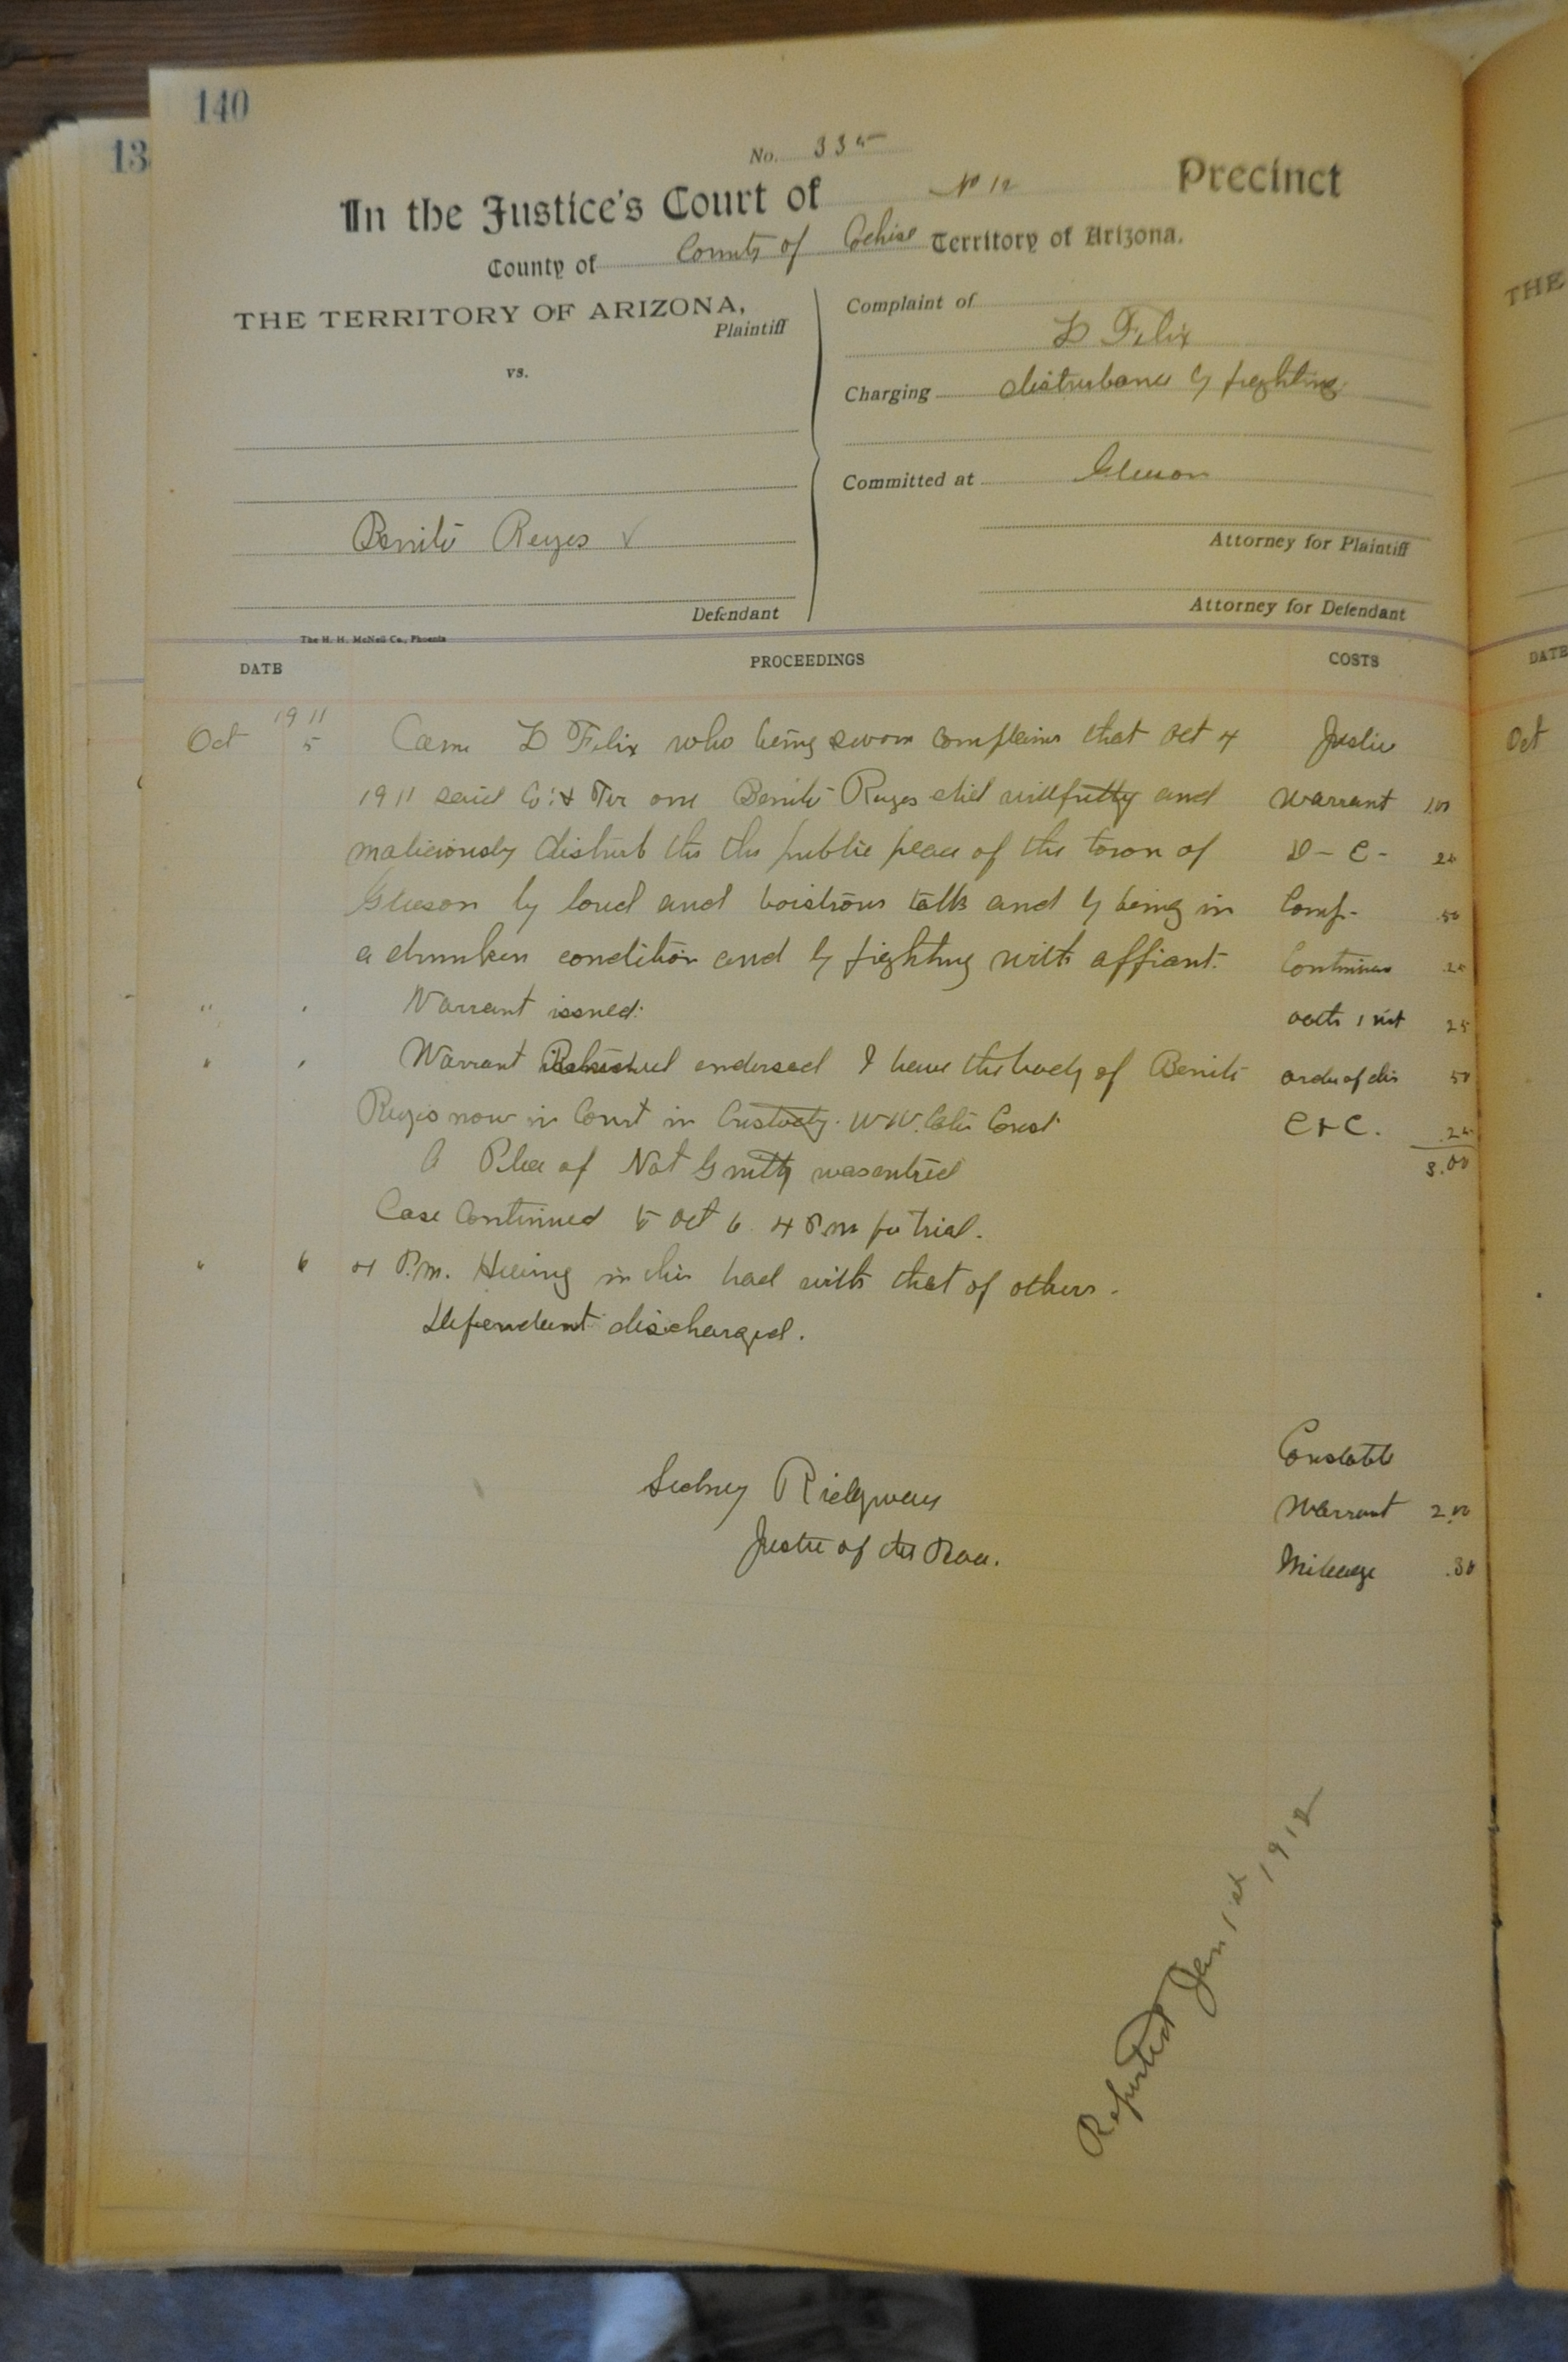 140
13
No. 335
In the Justice's Court of No 12 Precinct
County of County of Cochise Territory of Arizona.
THE TERRITORY OF ARIZONA,
Plaintiff
vs.
Benito Reyes ✓
Defendant
Complaint of
D Felix
Charging disturbance by fighting
Committed at Gleeson
Attorney for Plaintiff
Attorney for Defendant
The H. H. McNeil Co., Phoenix
DATE PROCEEDINGS COSTS
1911
Oct 5 Came D Felix who being sworn complains that Oct 4 Justice
1911 said Co: & Ter one Benito Reyes did willfully and Warrant 1.00
maliciously disturb the the public peace of the town of D - C - 25
Gleeson by loud and boistrous talk and by being in Comp. .50
a drunken condition and by fighting with affiant. Continues .25
" " Warrant issued. oath 1 wit 25
" " Warrant Returned endorsed I have the body of Benito order of dis 50
Reyes now in Court in Custody. W.W. Const. C & C. .25
3.00
A Plea of Not Guilty was entred
Case Continued to Oct 6 4 P.m for trial.
" 6 4 P.m. Hearing in this had with that of others.
Defendant discharged.
Sidney Ridgway
Justice of the Peace.
Constable
Warrant 2.00
Mileage .30
Reported Jan 1st 1912
THE
DATE
Oct